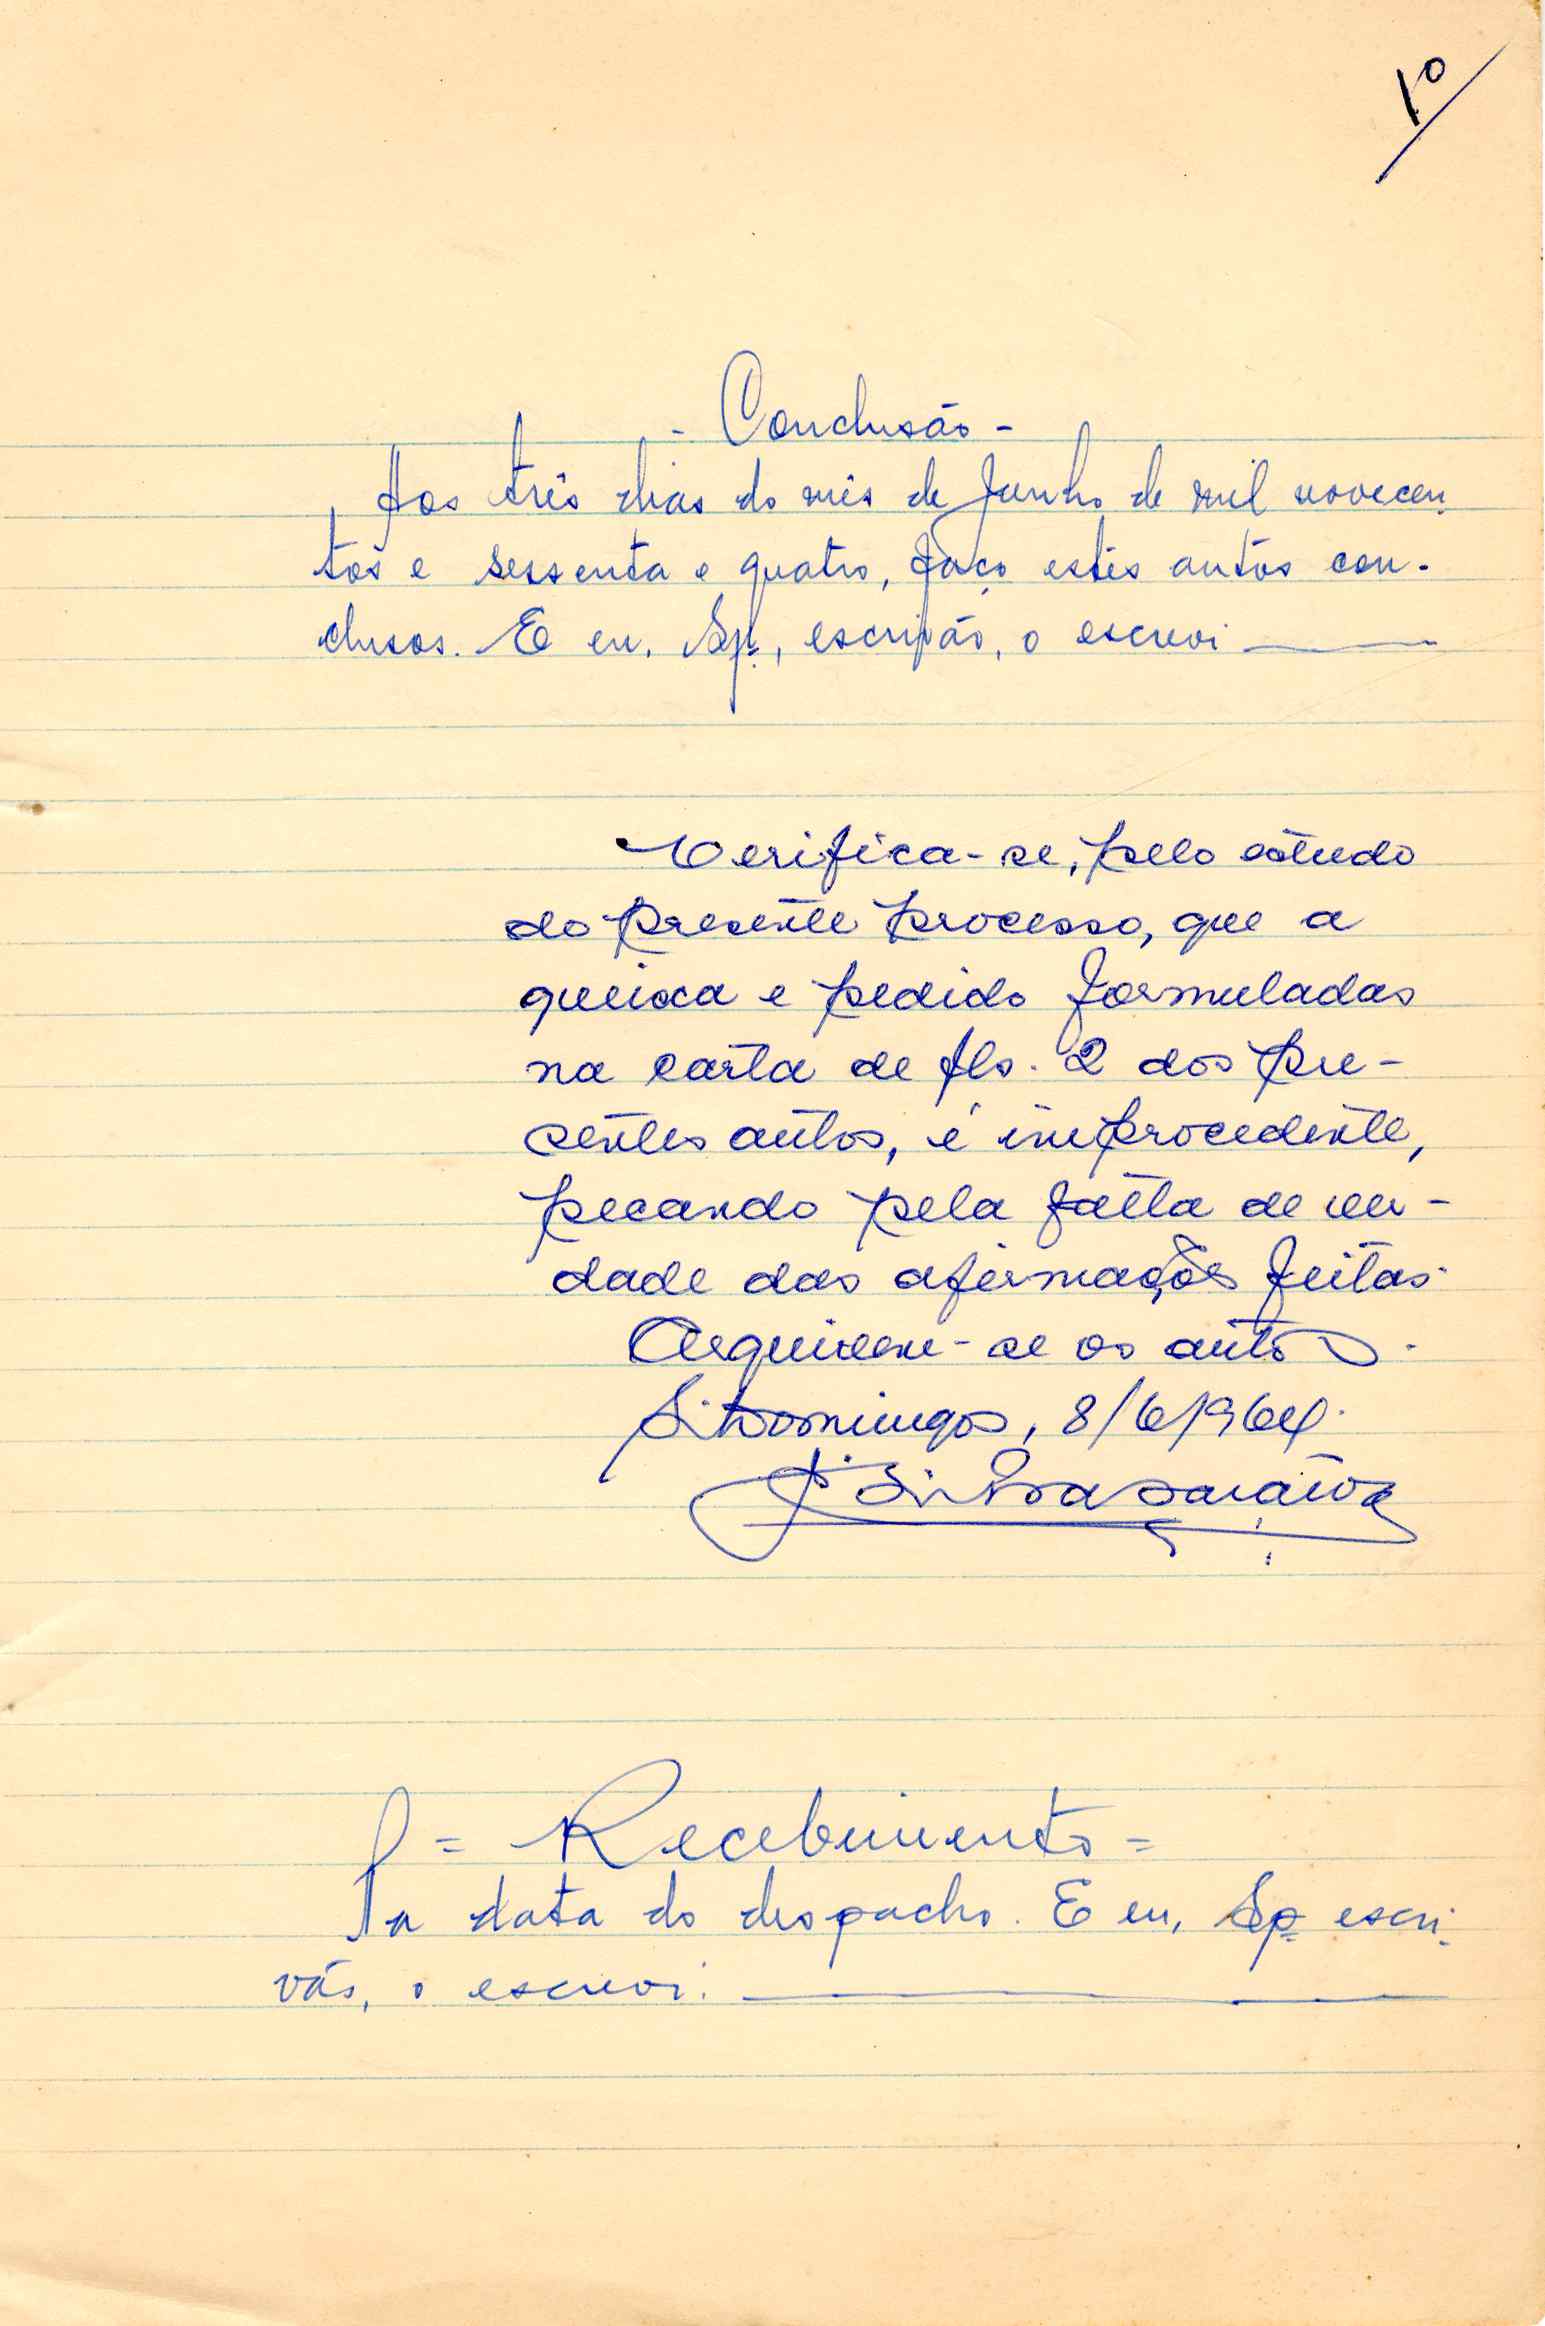 1º
- Conclusão -
Aos três dias do mês de Junho de mil novecen-
tos e sessenta e quatro, faço estes autos con-
clusos. E eu, escrivão, o escrevi
Verifica-se, pelo estudo
do presente processo, que a
queixa e pedido formuladas
na carta de fls. 2 dos pre-
sentes autos, é improcedente,
pecando pela falta de ver-
dade das afirmações feitas.
Arquivem-se os autos.
S. Domingos, 8/6/964.
= Recebimento =
Na data do despacho. E eu, escri-
vão, o escrevi.